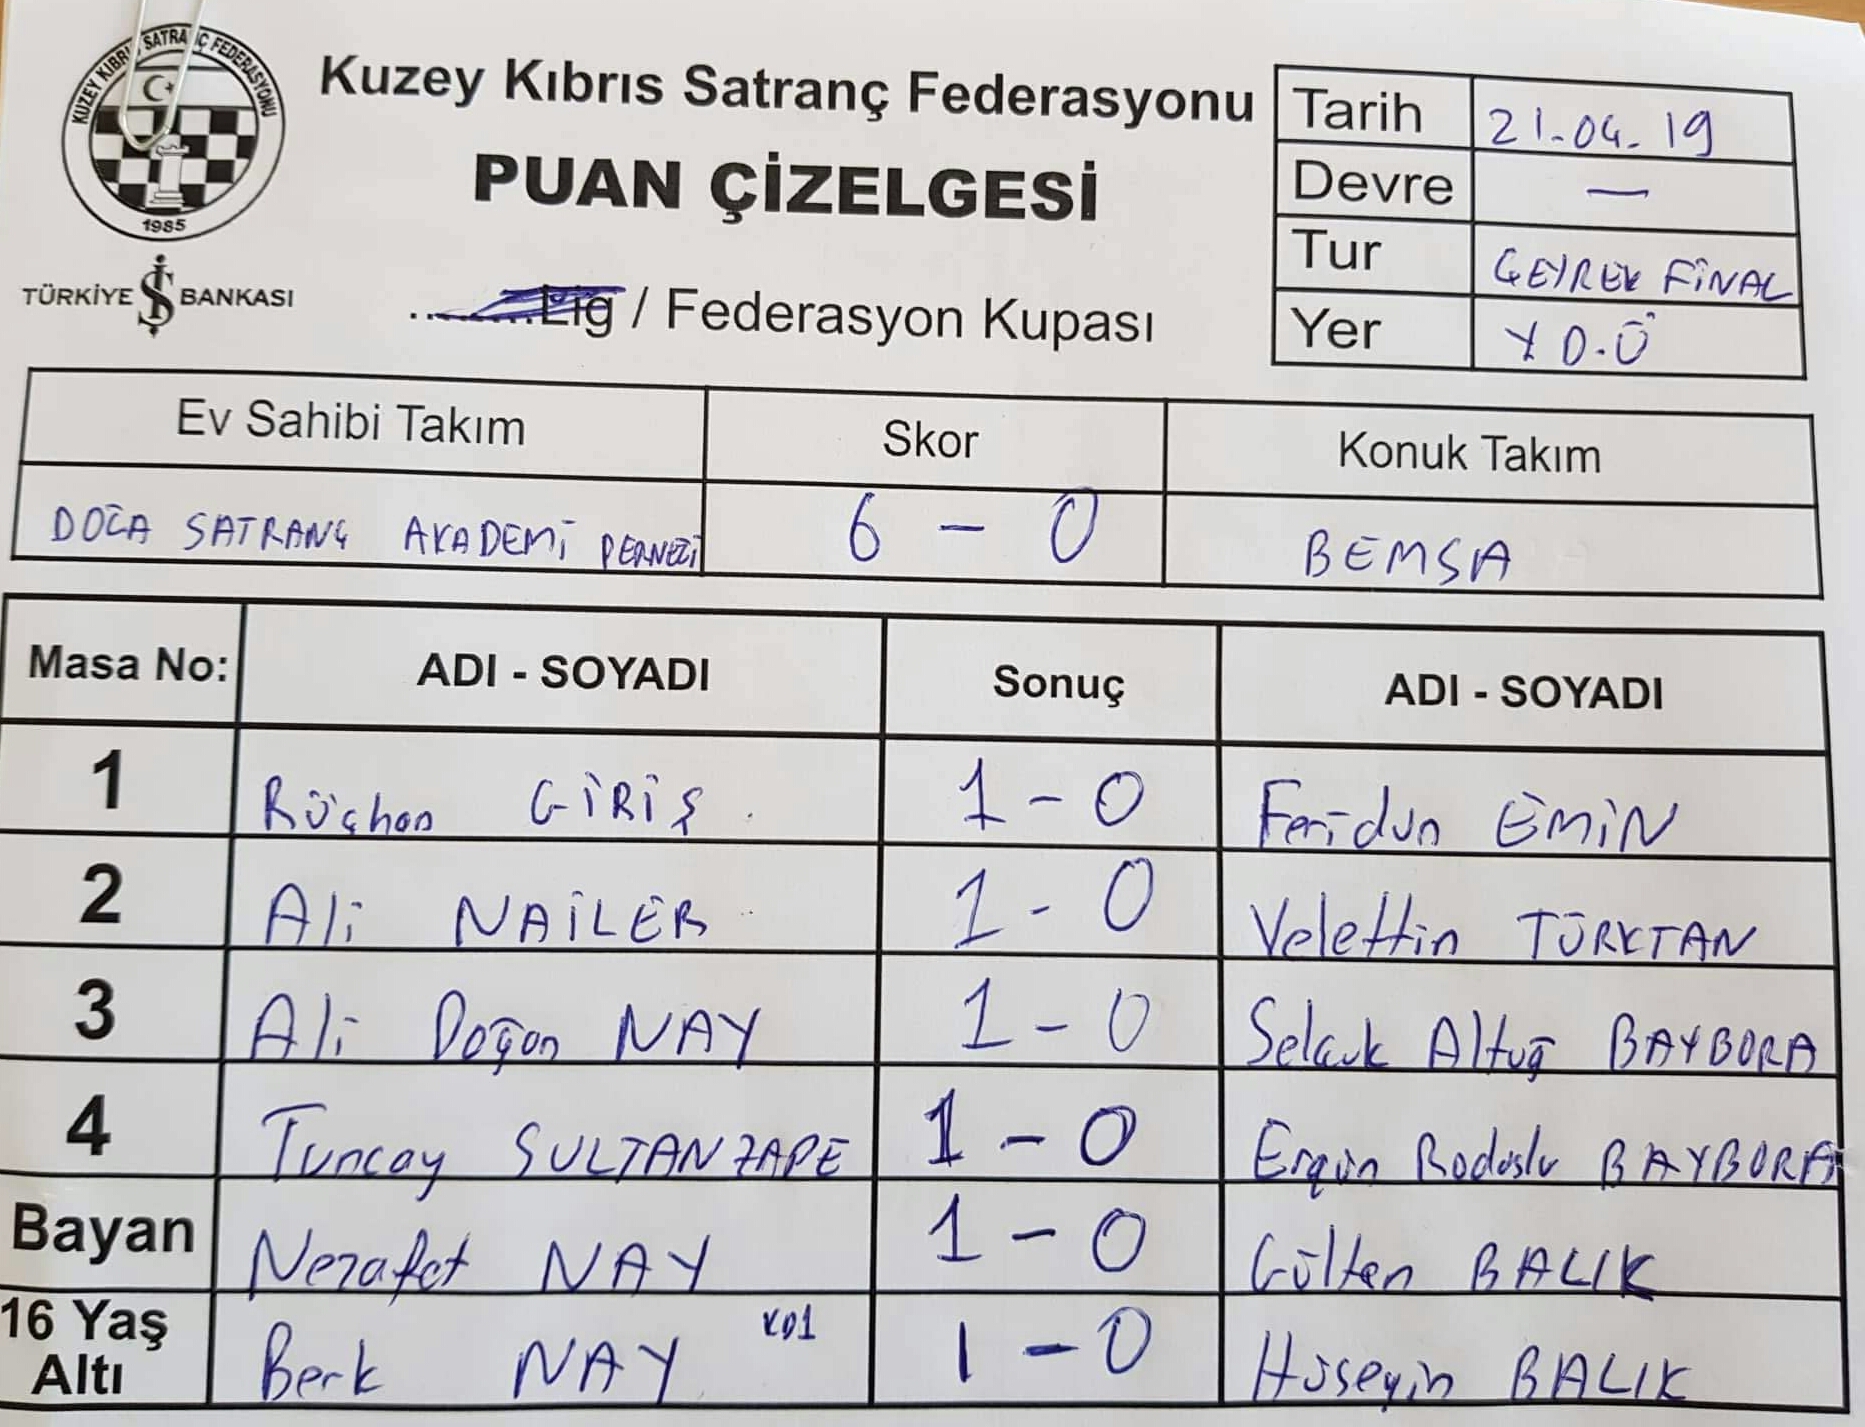 KUZEY KIBRIS SATRANÇ FEDERASYONU
1985
TÜRKİYE İŞ BANKASI
Kuzey Kıbrıs Satranç Federasyonu
PUAN ÇİZELGESİ
..........Lig / Federasyon Kupası
Tarih 21.04.19
Devre —
Tur ÇEYREK FİNAL
Yer YD.Ü
Ev Sahibi Takım Skor Konuk Takım
DOĞA SATRANÇ AKADEMİ DERNEĞİ 6 - 0 BEMSA
Masa No: ADI - SOYADI Sonuç ADI - SOYADI
1 Rüçhan GİRİŞ 1 - 0 Feridun EMİN
2 Ali NAİLER 1 - 0 Velettin TÜRKTAN
3 Ali Doğan NAY 1 - 0 Selçuk Altuğ BAYBORA
4 Tuncay SULTANZADE 1 - 0 Ergün Roduslu BAYBORA
Bayan Nezafet NAY 1 - 0 Gülten BALIK
16 Yaş Altı Berk NAY 1 - 0 Hüseyin BALIK